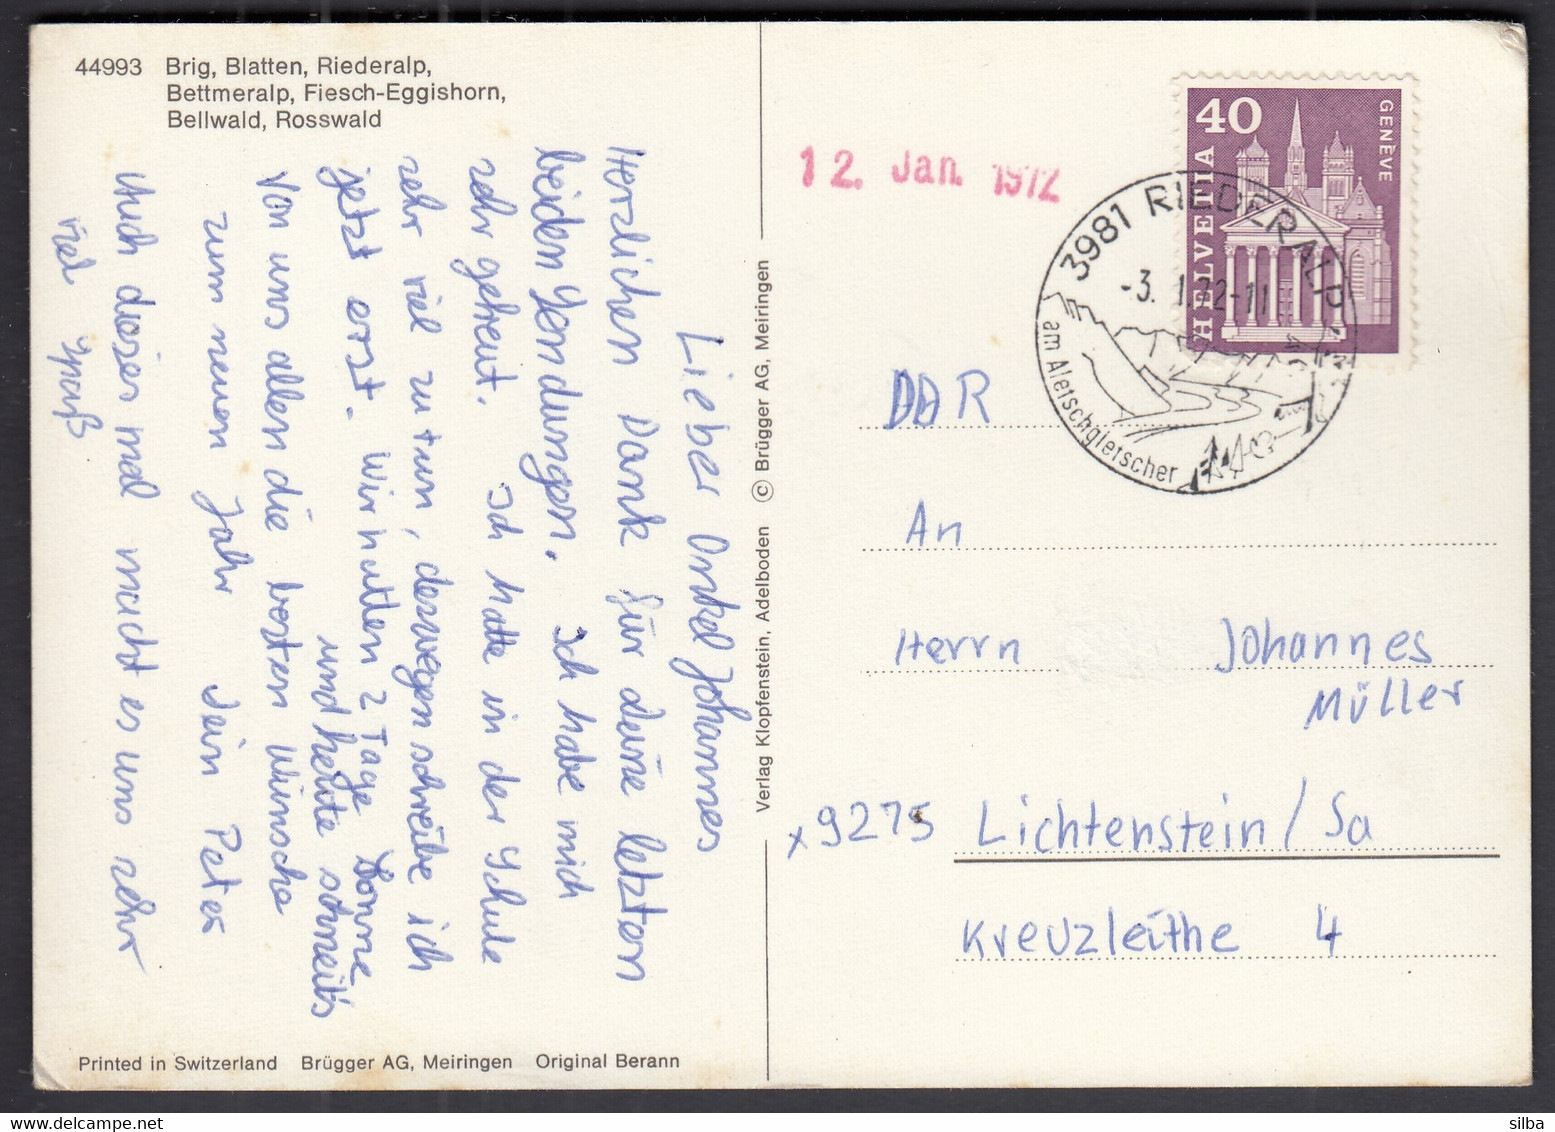 44993 Brig, Blatten, Riederalp,
Bettmeralp, Fiesch-Eggishorn,
Bellwald, Rosswald
Lieber Onkel Johannes
Herzlichen Dank für deine letzten
beiden Sendungen. Ich habe mich
sehr gefreut. Ich hatte in der Schule
sehr viel zu tun, deswegen schreibe ich
jetzt erst. Wir hatten 2 Tage Sonne
und heute schneit's
Von uns allen die besten Wünsche
zum neuen Jahr Dein Peter
Auch dieses mal macht es uns sehr
viel Spass
Printed in Switzerland Brügger AG, Meiringen Original Berann
Verlag Klopfenstein, Adelboden © Brügger AG, Meiringen
12. Jan. 1972
40
GENÈVE
HELVETIA
3981 RIEDERALP
-3. 1.72-11
am Aletschgletscher
DDR
An
Herrn Johannes
Müller
x9275 Lichtenstein/Sa
Kreuzleithe 4